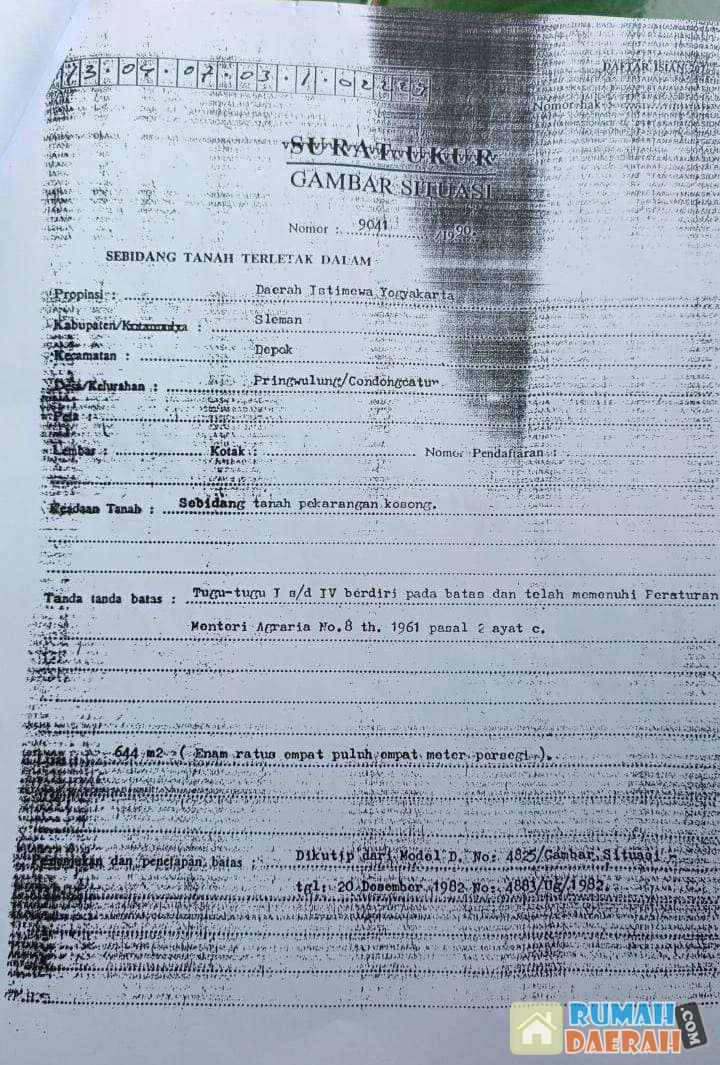 13.04.07.03.1.02227
DAFTAR ISIAN 207
Nomor Hak :
SURAT UKUR
GAMBAR SITUASI
Nomor : 9041 /19 90.
SEBIDANG TANAH TERLETAK DALAM
Propinsi : Daerah Istimewa Yogyakarta
Kabupaten/Kotamadya : Sleman
Kecamatan : Depok
Desa/Kelurahan : Pringwulung/Condongcatur.
Peta :
Lembar : Kotak : Nomor Pendaftaran :
Keadaan Tanah : Sebidang tanah pekarangan kosong.
Tanda tanda batas : Tugu-tugu I s/d IV berdiri pada batas dan telah memenuhi Peraturan
Menteri Agraria No.8 th. 1961 pasal 2 ayat c.
Luas : 644 m2 -( Enam ratus empat puluh empat meter persegi ).
Penunjukan dan penetapan batas : Dikutip dari Model D. No: 4825/Gambar Situasi -
tgl: 20 Desember 1982 No: 4881/Ug/1982.
RUMAH
DAERAH
.COM